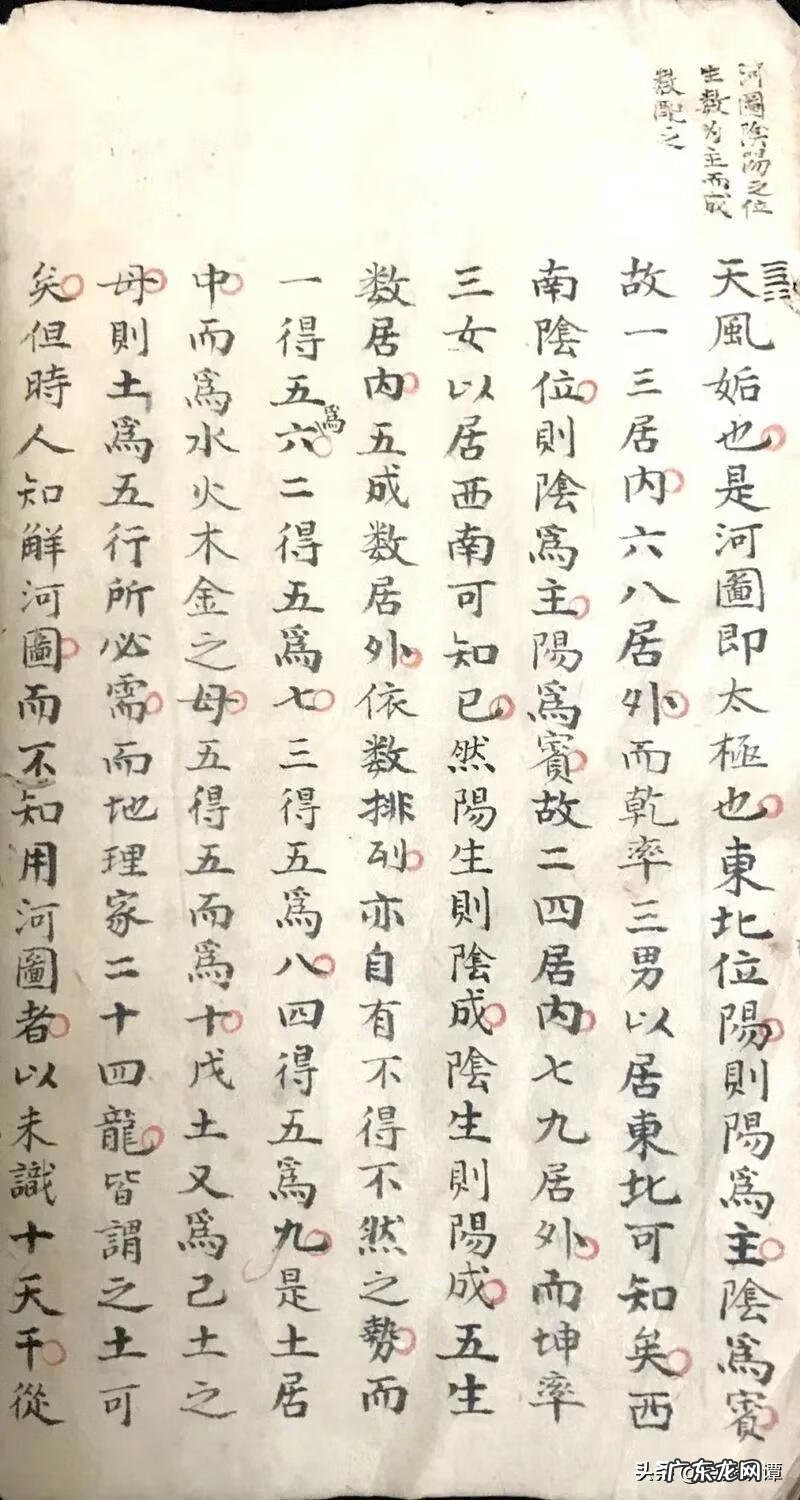 河圖陰陽之位
生數为主而成
數配之
天風姤也是河圖即太極也東北位陽則陽爲主陰爲賓
故一三居内六八居外而乾率三男以居東北可知矣西
南陰位則陰爲主陽爲賓故二四居内七九居外而坤率
三女以居西南可知已然陽生則陰成陰生則陽成五生
数居内五成数居外依数排列亦自有不得不然之勢而
一得五爲六二得五爲七三得五爲八四得五爲九是土居
中而爲水火木金之母五得五而爲十戊土又爲己土之
母則土爲五行所必需而地理家二十四龍皆謂之土可
矣但時人知解河圖而不知用河圖者以未識十天干從
广东龙网